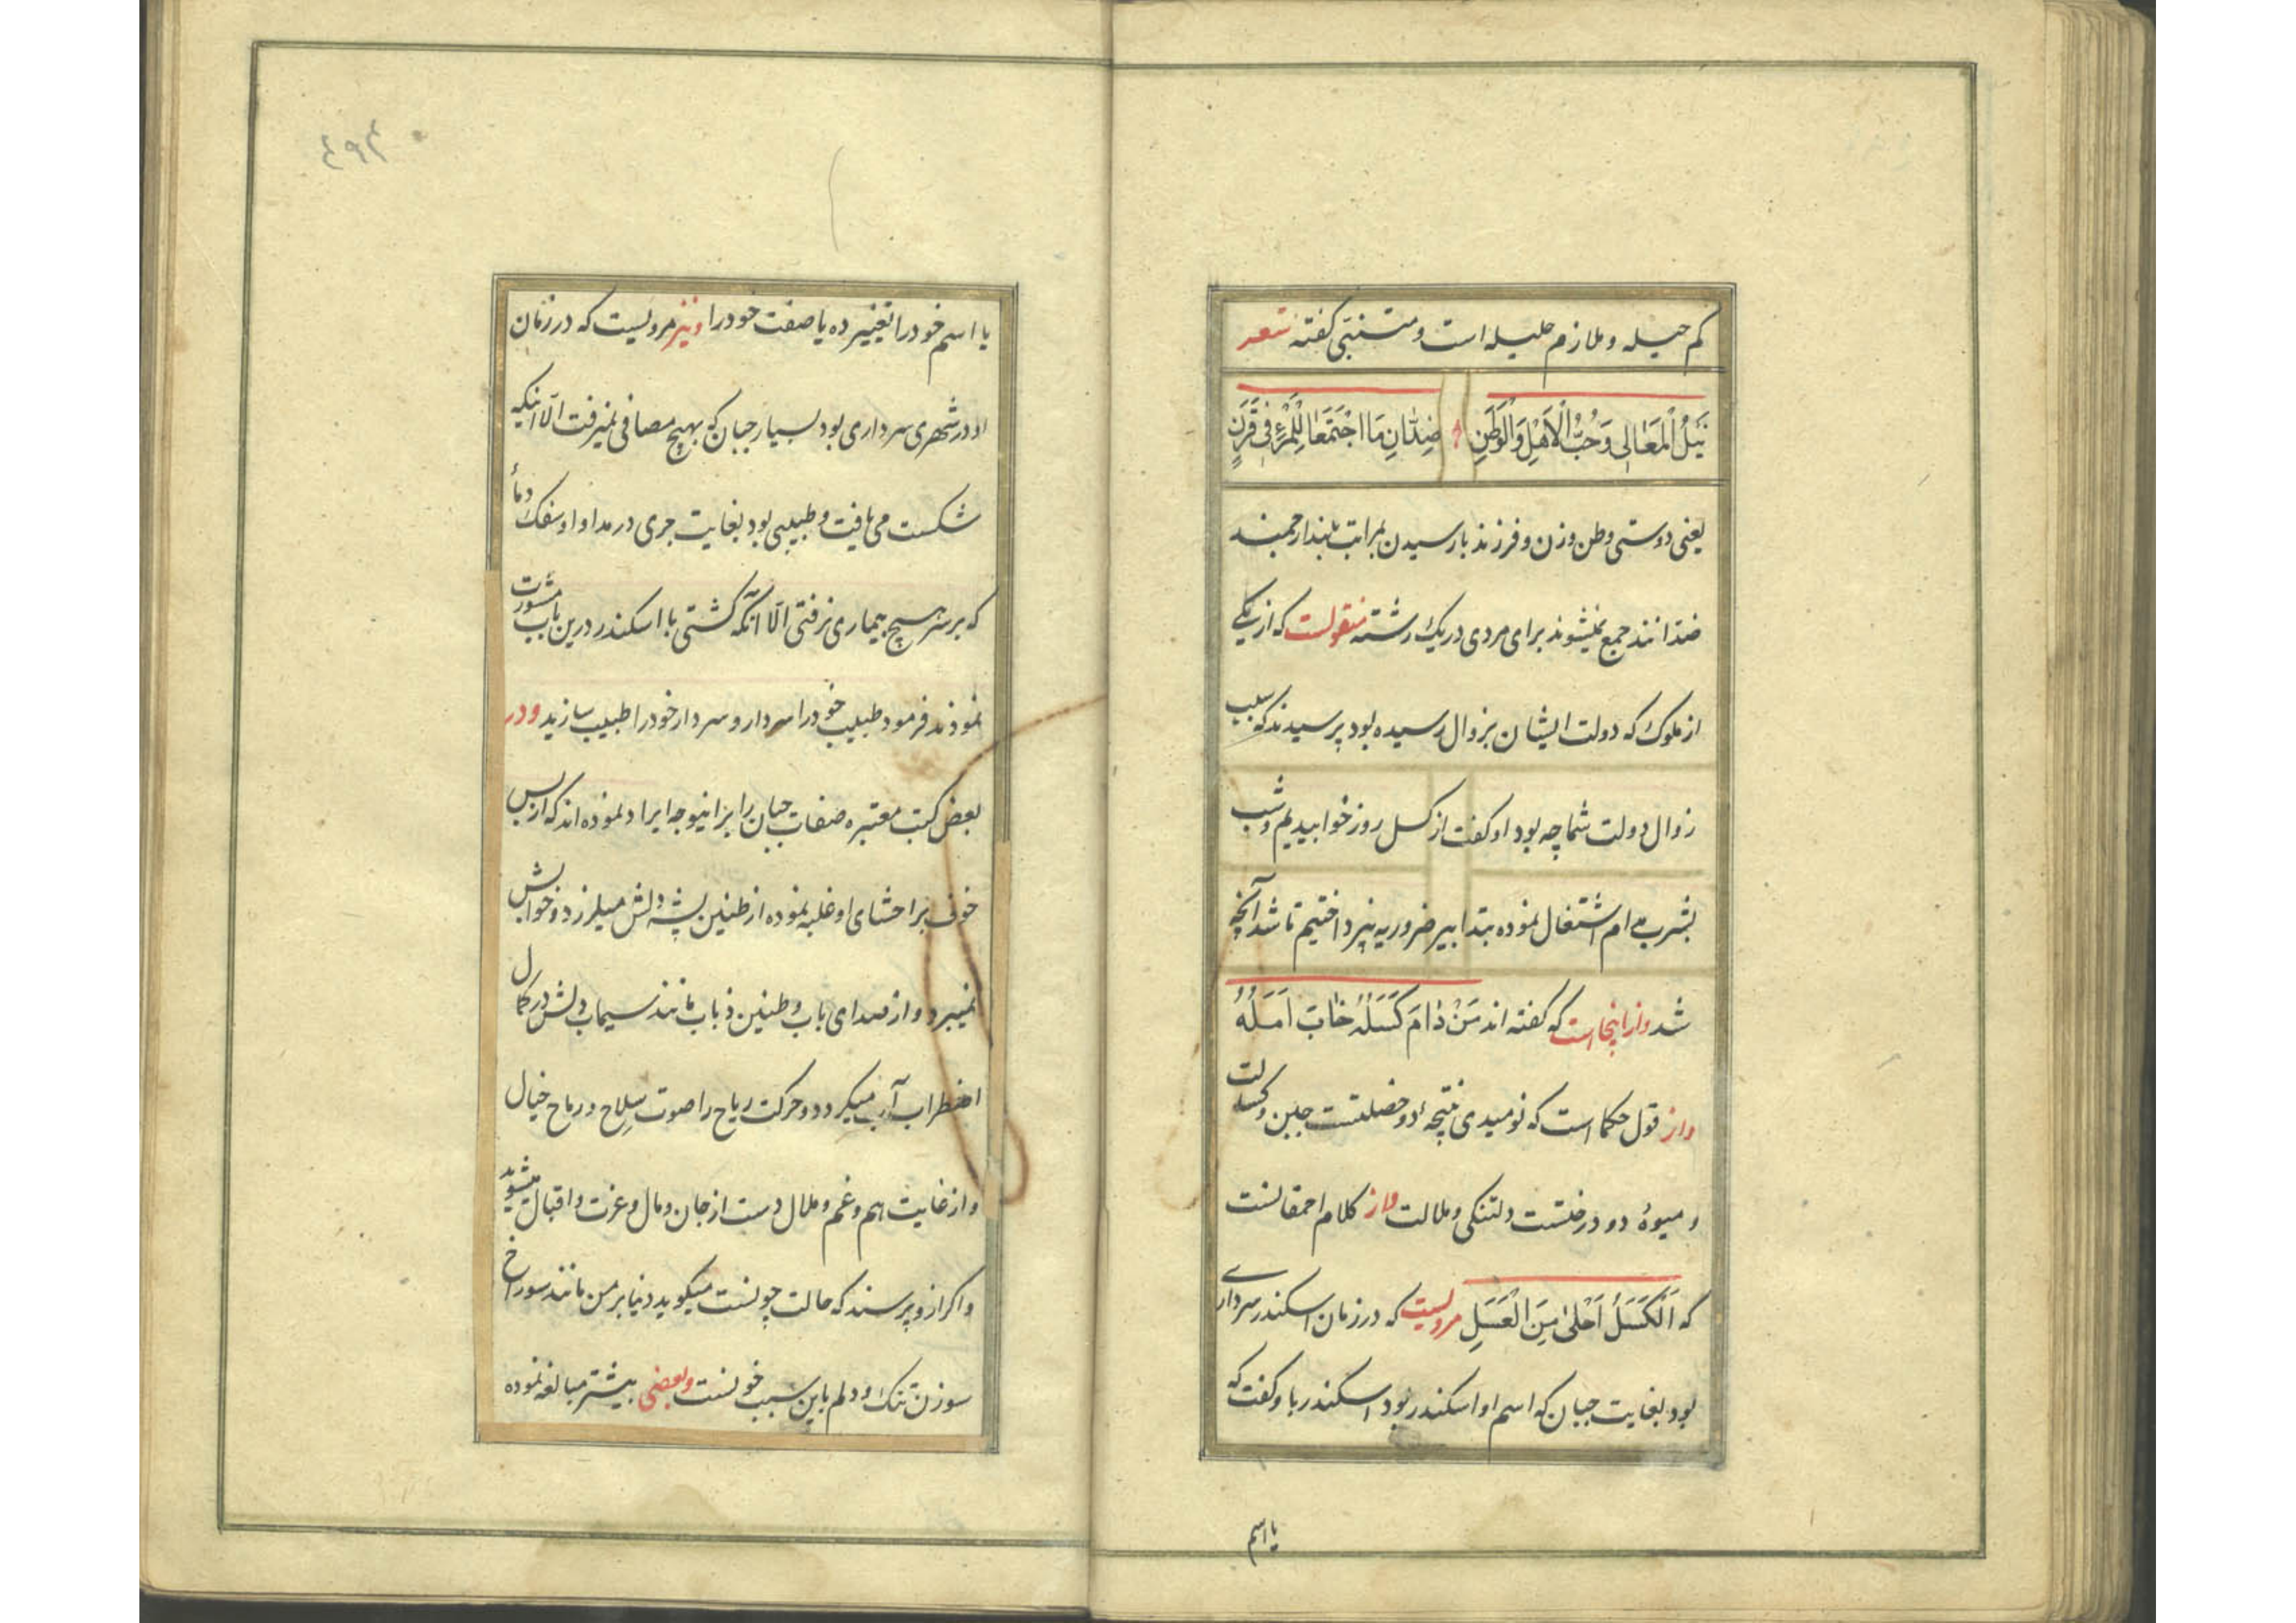 کم حیله و ملازم حلیله است و متنبّی گفته شعر
نَیْلُ الْمَعَالِی وَحُبُّ الْاَهْلِ وَالْوَطَنِ ضِدَّانِ مَا اجْتَمَعَا لِلْمَرْءِ فِی قَرَنٍ
یعنی دوستی وطن و زن و فرزند با رسیدن بمراتب بلند ارجمند
ضدانند جمع نمیشوند برای مردی در یک رشته منقولست که از یکی
از ملوک که دولت ایشان بزوال رسیده بود پرسیدند که سبب
زوال دولت شما چه بود او گفت از کسل روز خوابیدیم و شب
بشرب مدام اشتغال نموده بتدابیر ضروریه نپرداختیم تا شد آنچه
شد و از اینجاست که گفته اند مَنْ دٰامَ کَسَلُهُ خٰابَ اَمَلُهُ
و از قول حکما است که نومیدی نتیجهٔ دو خصلتست جبن و کسالت
و میوهٔ دو درختست دلتنکی و ملالت و از کلام احمقانست
که اَلْکَسَلُ اَحْلیٰ مِنَ الْعَسَلِ مرویست که در زمان اسکندر سرداری
بود بغایت جبان که اسم او اسکندر بود اسکندر باو گفت که
یا اسم
یا اسم خود را تغییر ده یا صفت خود را و نیز مرویست که در زمان
او در شهری سرداری بود بسیار جبان که بهیچ مصافی نمیرفت الّا اینکه
شکست می یافت و طبیبی بود بغایت جری در مداوا و سفک دمأ
که بر سر هیچ بیماری نرفتی الّا آنکه گشتی با اسکندر درین باب مشورت
نمودند فرمود طبیب خود را سردار و سردار خود را طبیب سازید و در
بعض کتب معتبره صفات جبان را بزاینوجه ایراد نموده اند که از بس
خوف بر احشای او غلبه نموده از طنین پشه دلش میلرزد و خوابش
نمیبرد و از صدای باب و طنین ذباب مانند سیماب دلش در کمال
اضطراب آب میکردد و حرکت ریاح را صوت سِلاح و رماح خیال
و از غایت هم و غم و ملال دست از جان و مال و عزت و اقبال میشوید
و اکر ازو پرسند که حالت چونست میکوید دنیا بر من مانند سوراخ
سوزن تنک و دلم باین سبب خونست و بعضی بیشتر مبالغه نموده